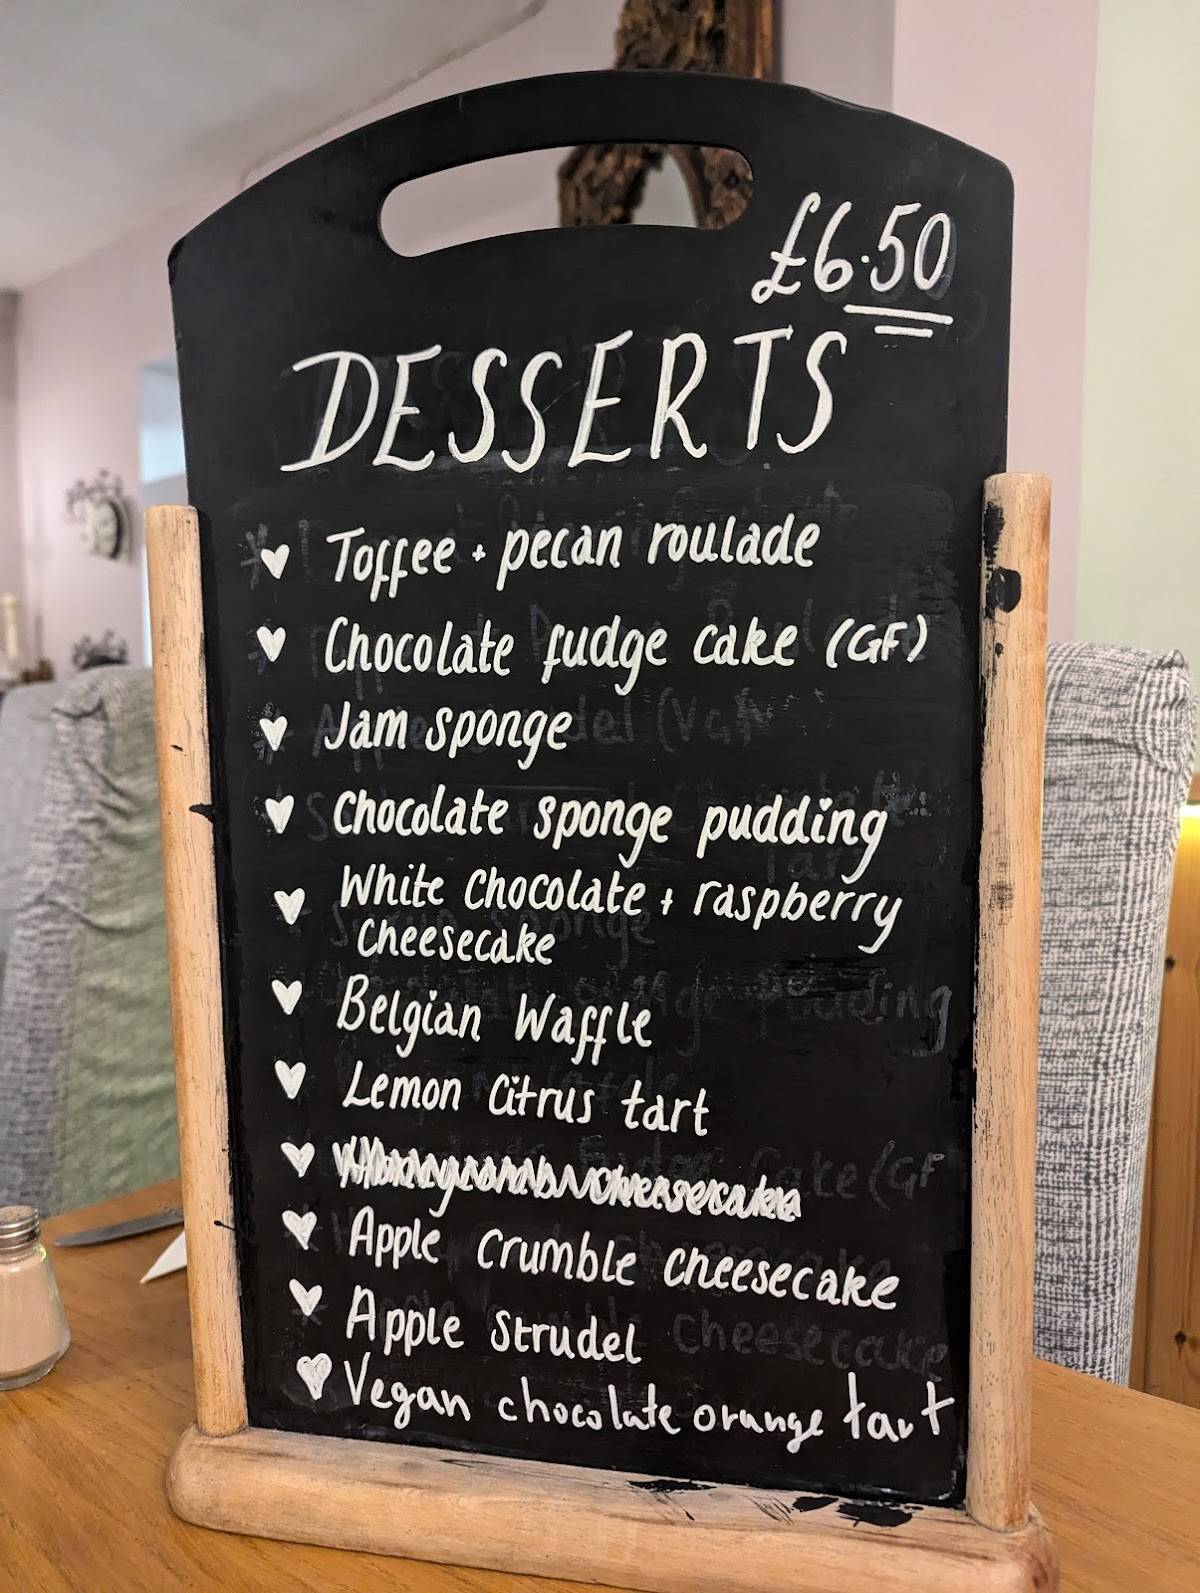 £6.50
DESSERTS
Toffee + pecan roulade
Chocolate fudge cake (GF)
Jam sponge
Chocolate sponge pudding
White Chocolate + raspberry
cheesecake
Belgian Waffle
Lemon Citrus tart
Honeycomb cheesecake
Apple crumble cheesecake
Apple strudel
Vegan chocolate orange tart